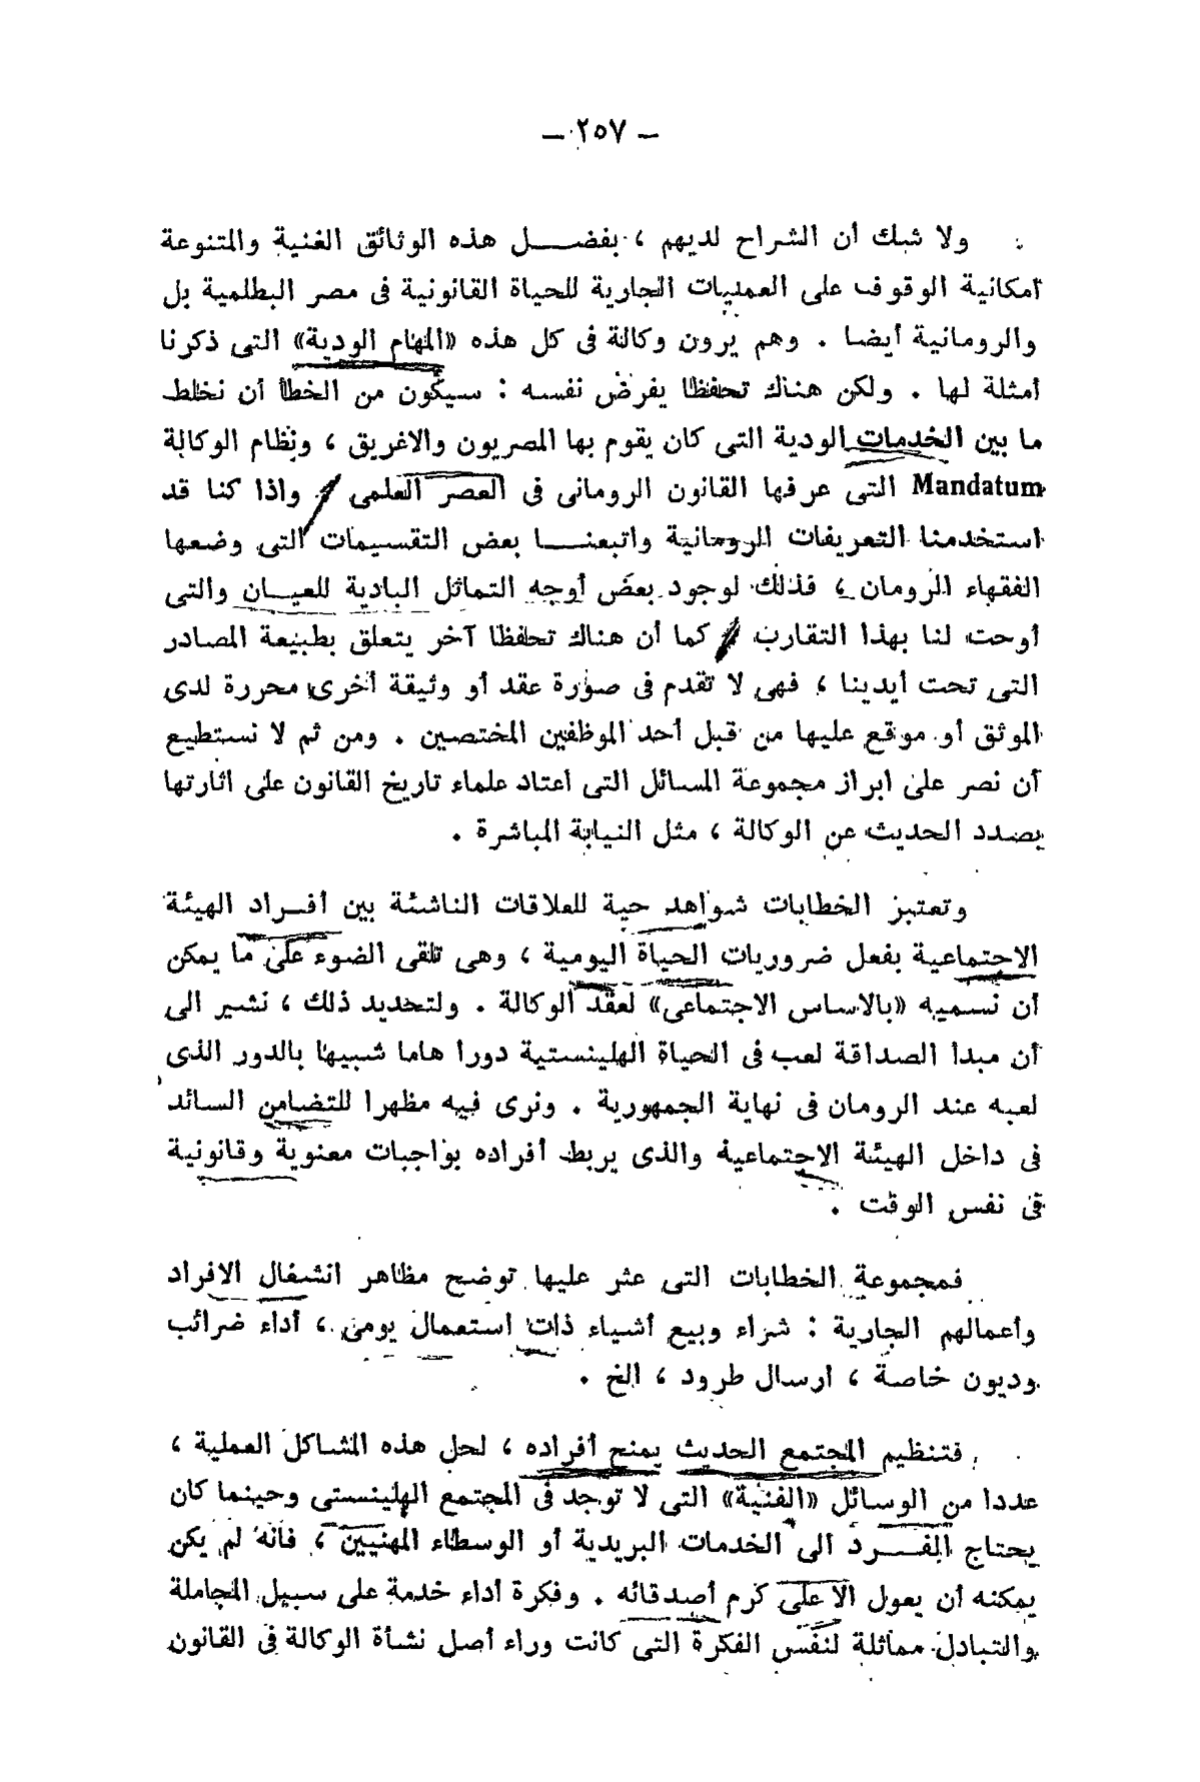 — ٢٥٧ —
ولا شك أن الشراح لديهم ، بفضـــل هذه الوثائق الغنية والمتنوعة
امكانية الوقوف على العمليات الجارية للحياة القانونية فى مصر البطلمية بل
والرومانية أيضا . وهم يرون وكالة فى كل هذه «المهام الودية» التى ذكرنا
أمثلة لها . ولكن هناك تحفظا يفرض نفسه : سيكون من الخطأ أن نخلط
ما بين الخدمات الودية التى كان يقوم بها المصريون والاغريق ، ونظام الوكالة
Mandatum التى عرفها القانون الرومانى فى العصر العلمى . واذا كنا قد
استخدمنا التعريفات الرومانية واتبعنـــا بعض التقسيمات التى وضعها
الفقهاء الرومان ، فذلك لوجود بعض أوجه التماثل البادية للعيـــان والتى
أوحت لنا بهذا التقارب . كما أن هناك تحفظا آخر يتعلق بطبيعة المصادر
التى تحت أيدينا ، فهى لا تقدم فى صورة عقد أو وثيقة أخرى محررة لدى
الموثق أو موقع عليها من قبل أحد الموظفين المختصين . ومن ثم لا نستطيع
أن نصر على ابراز مجموعة المسائل التى اعتاد علماء تاريخ القانون على اثارتها
بصدد الحديث عن الوكالة ، مثل النيابة المباشرة .
وتعتبر الخطابات شواهد حية للعلاقات الناشئة بين أفـراد الهيئة
الاجتماعية بفعل ضروريات الحياة اليومية ، وهى تلقى الضوء على ما يمكن
أن نسميه «بالاساس الاجتماعى» لعقد الوكالة . ولتحديد ذلك ، نشير الى
أن مبدأ الصداقة لعب فى الحياة الهلينستية دورا هاما شبيها بالدور الذى
لعبه عند الرومان فى نهاية الجمهورية . ونرى فيه مظهرا للتضامن السائد
فى داخل الهيئة الاجتماعية والذى يربط أفراده بواجبات معنوية وقانونية
فى نفس الوقت .
فمجموعة الخطابات التى عثر عليها توضح مظاهر انشغال الافراد
وأعمالهم الجارية : شراء وبيع أشياء ذات استعمال يومى ، أداء ضرائب
وديون خاصة ، ارسال طرود ، الخ .
فتنظيم المجتمع الحديث يمنح أفراده ، لحل هذه المشاكل العملية ،
عددا من الوسائل «الفنية» التى لا توجد فى المجتمع الهلينستى وحينما كان
يحتاج الفـــرد الى الخدمات البريدية أو الوسطاء المهنيين ، فانه لم يكن
يمكنه أن يعول الا على كرم أصدقائه . وفكرة أداء خدمة على سبيل المجاملة
والتبادل مماثلة لنفس الفكرة التى كانت وراء أصل نشأة الوكالة فى القانون